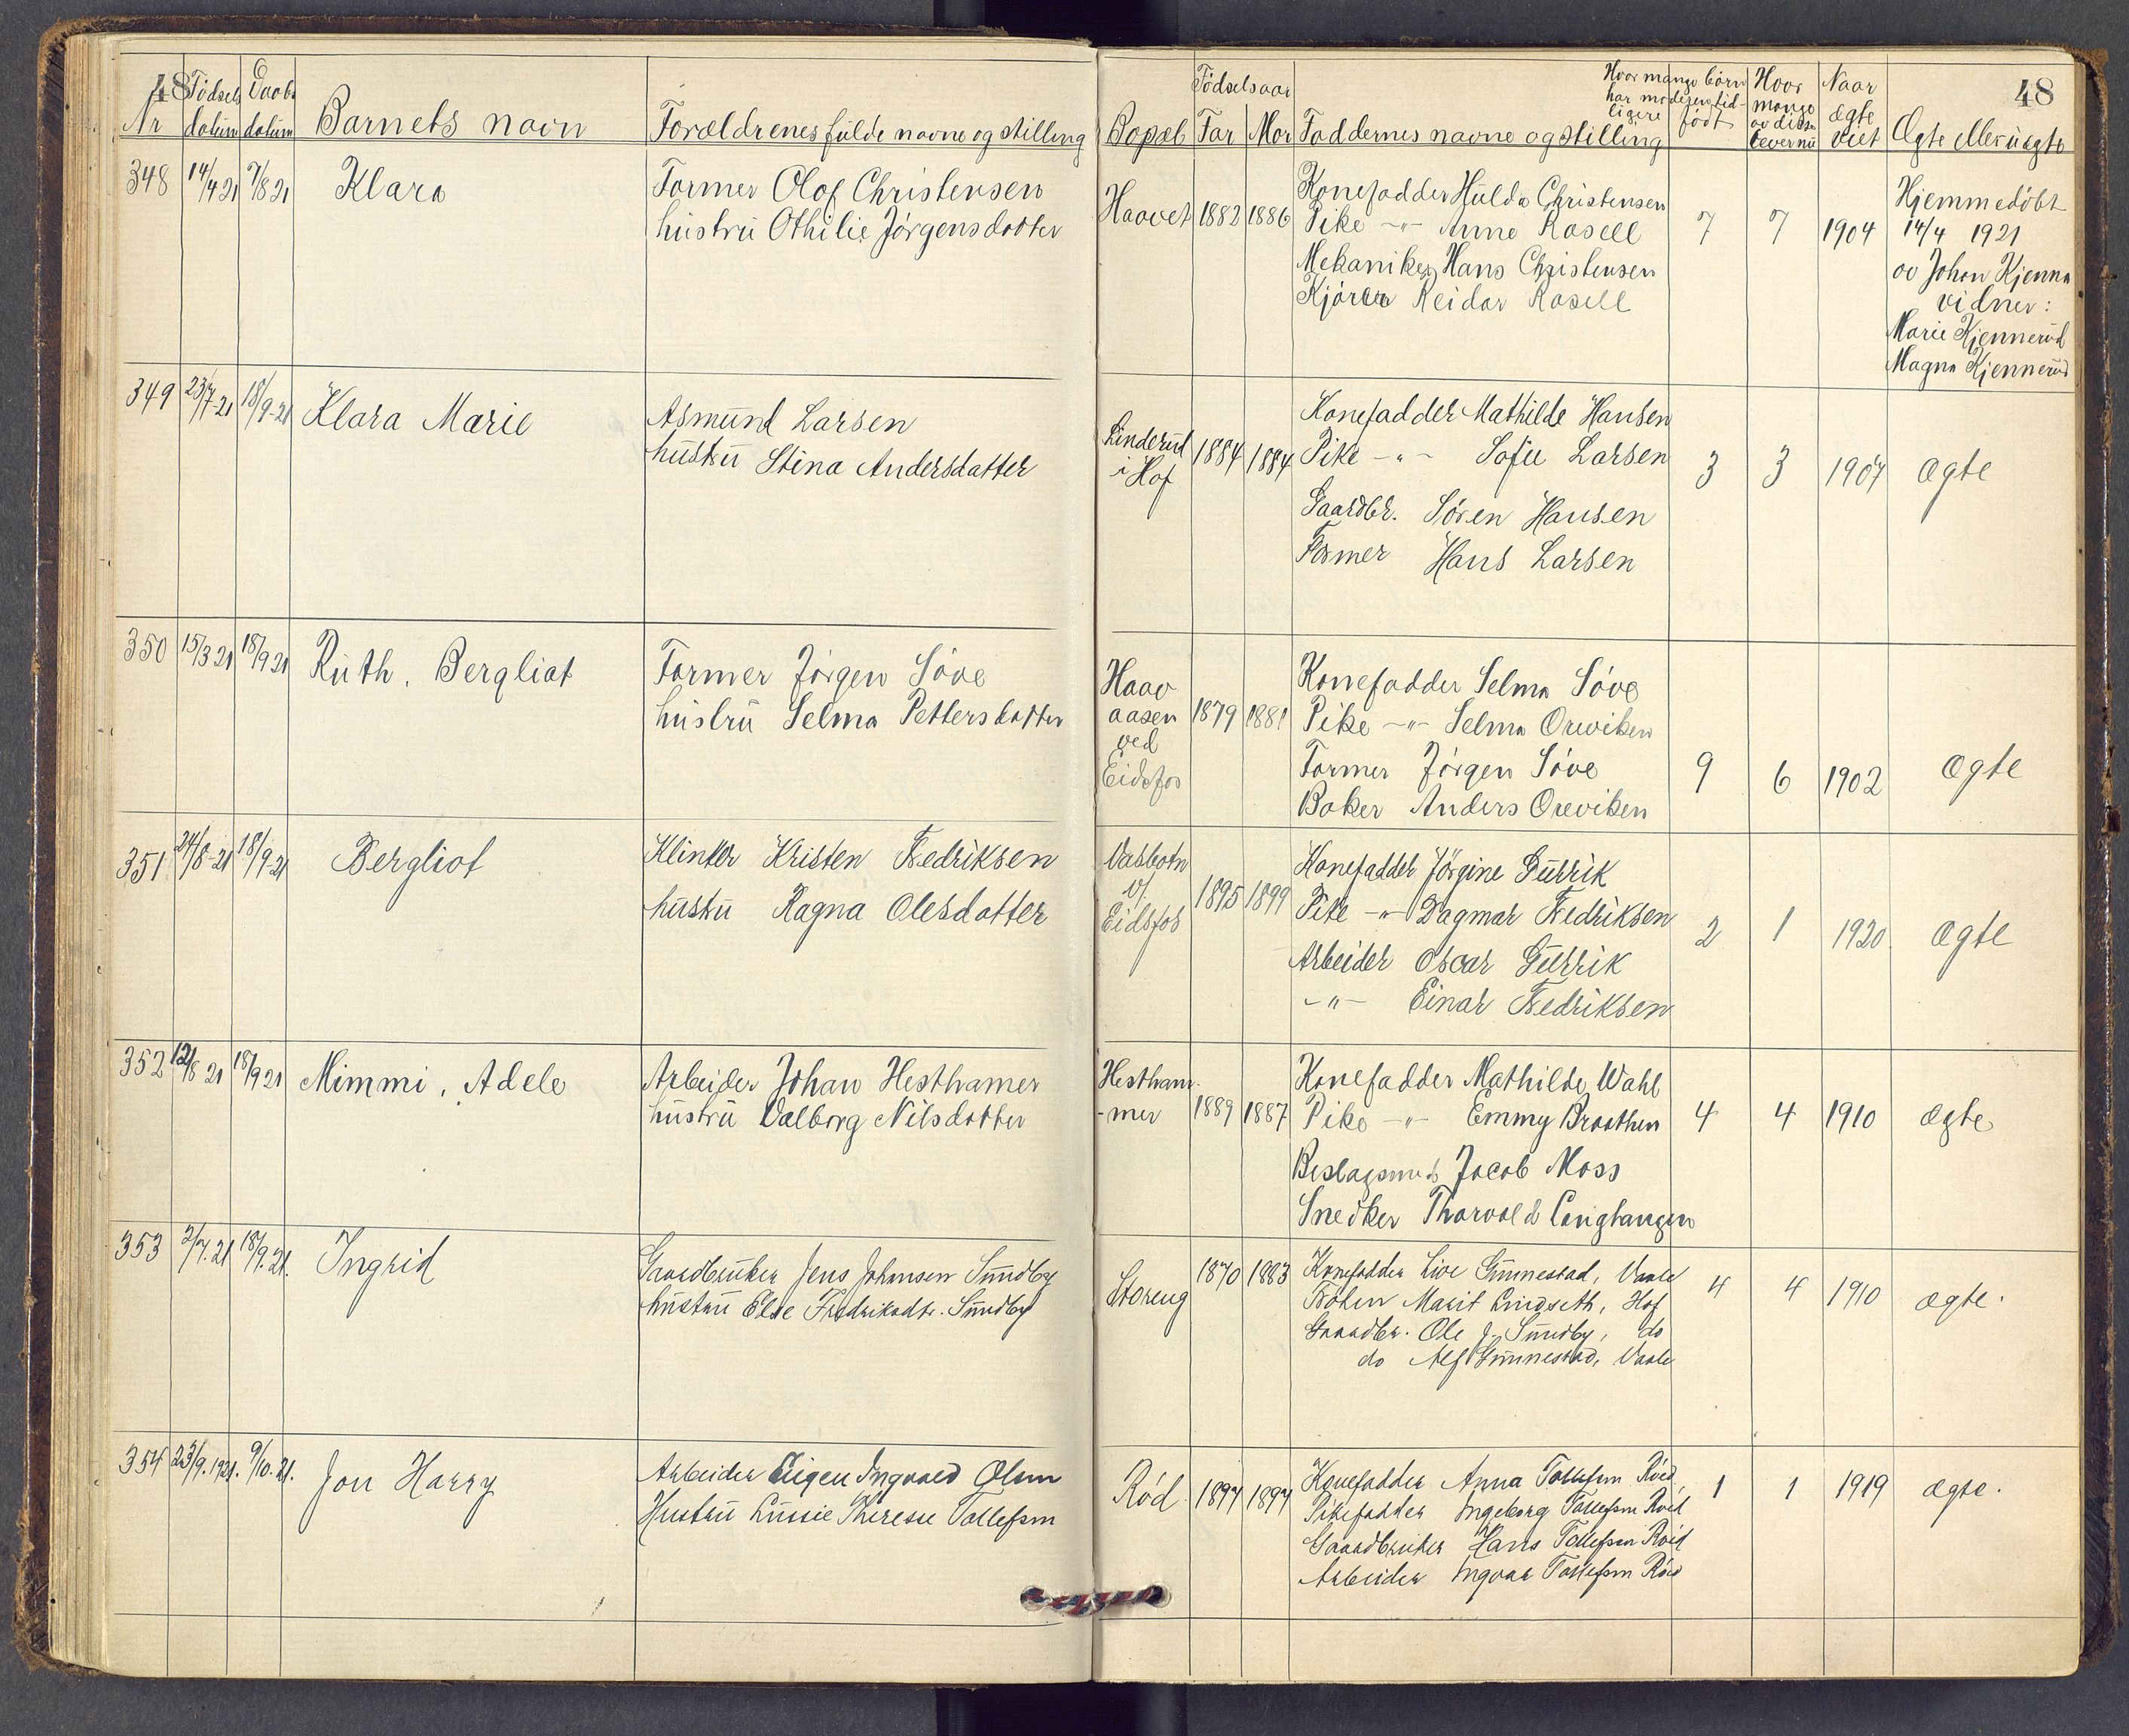 48
Nr
Födsels datum
Daabs datum
Barnets navn
Forældrenes fulde navne og stilling
348 14/4 21 7/8 21 Klara
Former Olof Christensen
hustru Othilie Jörgensdatter
349 23/7-21 18/9-21 Klara Marie
Asmund Larsen
hustru Stina Andersdatter
350 15/3 21 18/9 21 Ruth, Bergliot
Former Jörgen Söve
hustru Selma Pettersdatter
351 24/8-21 18/9-21 Bergliot
Klinker Kristen Fredriksen
hustru Ragna Olesdatter
352 12/8 21 18/9 21 Mimmi, Adele
Arbeider Johan Hesthamer
hustru Valborg Nilsdatter
353 2/7.21 18/9.21. Ingrid
Gaardbruker Jens Johansen Sundby
hustru Else Fredriksdtr. Sundby
354 23/9.1921. 9/10.21. Jon Harry
Arbeider Eigen Ingvald Olsen
Hustru Lussie Therese Tollefsen
48
Bopæl
Födselsaar
Far Mor
Faddernes navne og stilling
Hvor mange börn
har moderen tid-
ligere födt
Hvor
mange
av disse
lever nu
Naar
ægte
viet
Ægte eller uægte
Haavet 1882 1886
Konefadder Hulda Christensen
Pike -"- Anna Rosell
Mekaniker Hans Christensen
Kjörer Reidar Rosell
7 7 1904
Hjemmedöbt
14/4 1921
av Johan Kjenne
vidner:
Marie Kjennerud
Magna Kjennerud
Linderud
i Hof
1884 1884
Konefadder Mathilde Hansen
Pike -"- Sofie Larsen
Gaardbr. Sören Hansen
Former Hans Larsen
3 3 1907 Ægte
Haav
aasen
ved
Eidsfos
1879 1881
Konefadder Selma Söve
Pike -"- Selma Oreviken
Former Jörgen Söve
Baker Anders Oreviken
9 6 1902 Ægte
Vasbotn
v/
Eidsfos
1895 1899
Konefadder Jörgine Gurrik
Pike -"- Dagmar Fredriksen
Arbeider Oscar Gurrik
-"- Einar Fredriksen
2 1 1920 Ægte
Hestham-
-mer
1889 1887
Konefadder Mathilde Wahl
Pike -"- Emmy Braathen
Beslagsmed Jacob Moss
Snedker Thorvald Langhangen
4 4 1910 Ægte
Storeng 1870 1883
Konefadder Live Gunnestad, Vaale
Fröken Marit Lindseth, Hof
Gaardbr. Ole J. Sundby, do
do Alf Gunnestad, Vaale
4 4 1910 ægte.
Röd 1897 1897
Konefadder Anna Tollefsen Röd
Pikefadder Ingeborg Tollefsen Röd
Gaardbruker Hans Tollefsen Röd
Arbeider Ingvar Tollefsen Röd
1 1 1919 ægte.